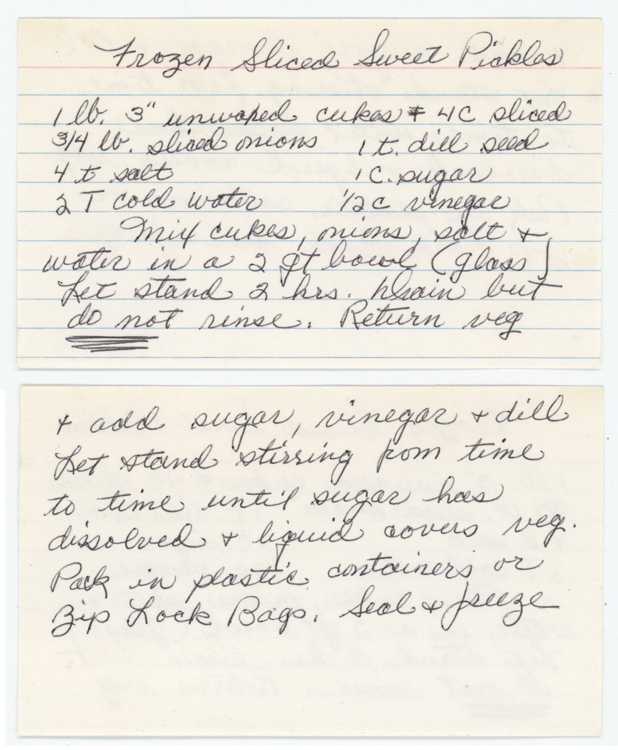 Frozen Sliced Sweet Pickles
1 lb. 3" unwaxed cukes = 4C sliced
3/4 lb. sliced onions 1 t. dill seed
4 t salt 1 C. sugar
2 T cold water 1/2 c vinegar
Mix cukes, onions, salt +
water in a 2 qt bowl (glass)
Let stand 2 hrs. Drain but
do not rinse. Return veg
+ add sugar, vinegar + dill
Let stand stirring from time
to time until sugar has
dissolved + liquid covers veg.
Pack in plastic containers or
Zip Lock Bags. Seal + freeze